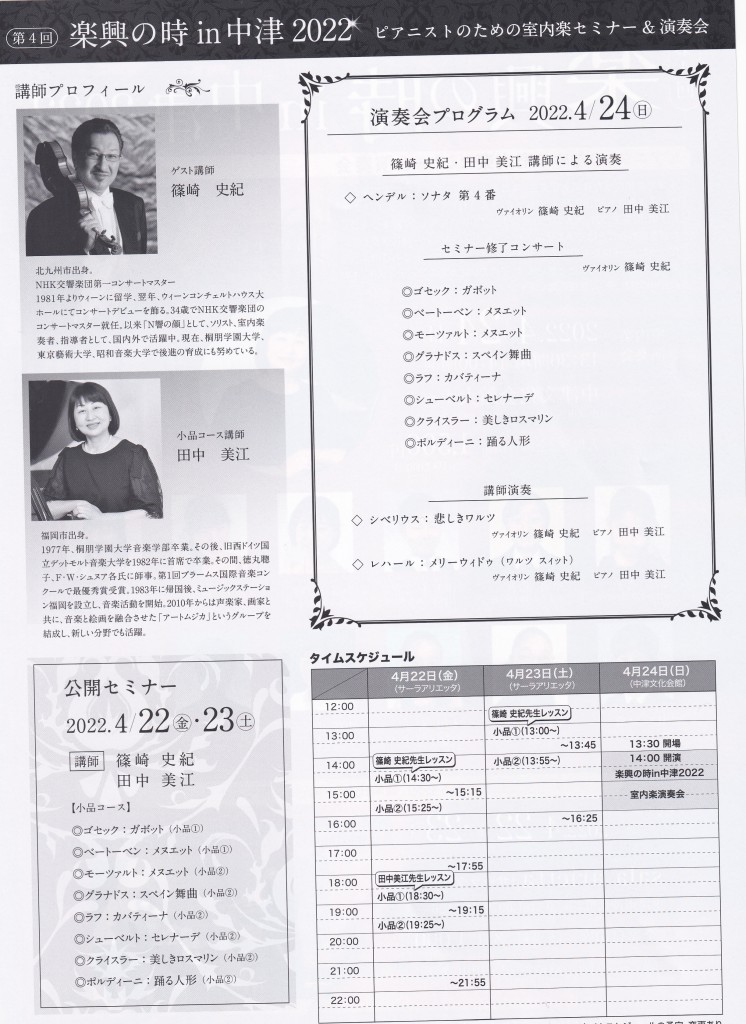 第4回 楽興の時 in 中津 2022 ピアニストのための室内楽セミナー & 演奏会
講師プロフィール
ゲスト講師
篠崎 史紀
北九州市出身。
NHK交響楽団第一コンサートマスター
1981年よりウィーンに留学、翌年、ウィーンコンチェルトハウス大
ホールにてコンサートデビューを飾る。34歳でNHK交響楽団の
コンサートマスター就任。以来「N響の顔」として、ソリスト、室内楽
奏者、指導者として、国内外で活躍中。現在、桐朋学園大学、
東京藝術大学、昭和音楽大学で後進の育成にも努めている。
小品コース講師
田中 美江
福岡市出身。
1977年、桐朋学園大学音楽学部卒業。その後、旧西ドイツ国
立デットモルト音楽大学を1982年に首席で卒業。その間、徳丸聰
子、F・W・シュヌア各氏に師事。第1回ブラームス国際音楽コン
クールで最優秀賞受賞。1983年に帰国後、ミュージックステーショ
ン福岡を設立し、音楽活動を開始。2010年からは声楽家、画家と
共に、音楽と絵画を融合させた「アートムジカ」というグループを
結成し、新しい分野でも活躍。
公開セミナー
2022.4/22金・23土
講師 篠崎 史紀
田中 美江
【小品コース】
◎ゴセック:ガボット(小品①)
◎ベートーベン:メヌエット(小品①)
◎モーツァルト:メヌエット(小品②)
◎グラナドス:スペイン舞曲(小品②)
◎ラフ:カバティーナ(小品②)
◎シューベルト:セレナーデ(小品②)
◎クライスラー:美しきロスマリン(小品②)
◎ポルディーニ:踊る人形(小品②)
演奏会プログラム 2022.4/24日
篠崎 史紀・田中 美江 講師による演奏
◇ ヘンデル:ソナタ 第4番
ヴァイオリン 篠崎 史紀 ピアノ 田中 美江
セミナー修了コンサート
ヴァイオリン 篠崎 史紀
◎ゴセック:ガボット
◎ベートーベン:メヌエット
◎モーツァルト:メヌエット
◎グラナドス:スペイン舞曲
◎ラフ:カバティーナ
◎シューベルト:セレナーデ
◎クライスラー:美しきロスマリン
◎ポルディーニ:踊る人形
講師演奏
◇ シベリウス:悲しきワルツ
ヴァイオリン 篠崎 史紀 ピアノ 田中 美江
◇ レハール:メリーウィドゥ(ワルツ スィット)
ヴァイオリン 篠崎 史紀 ピアノ 田中 美江
タイムスケジュール
4月22日(金) 4月23日(土) 4月24日(日)
(サーラアリエッタ) (サーラアリエッタ) (中津文化会館)
12:00
篠崎 史紀先生レッスン
13:00 小品①(13:00〜)
〜13:45 13:30 開場
14:00 篠崎 史紀先生レッスン 小品②(13:55〜) 14:00 開演
小品①(14:30〜) 楽興の時in中津2022
15:00 〜15:15 室内楽演奏会
小品②(15:25〜)
16:00 〜16:25
17:00
〜17:55
18:00 田中美江先生レッスン
小品①(18:30〜)
19:00 〜19:15
小品②(19:25〜)
20:00
21:00
〜21:55
22:00